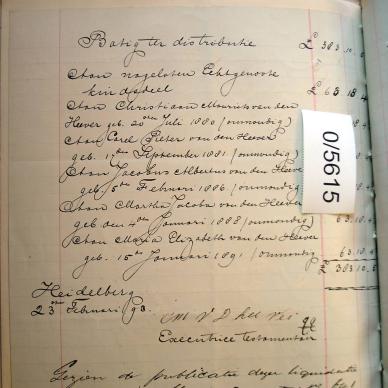 Batig ter distributie £ 383.10.
Aan nagelaten Echtgenoote
kindsdeel 63.18.4
Aan Christiaan Maurits van den
Heever geb. 20sten Juli 1880 (onmondig)
Aan Carel Pieter van den Heever
geb. 17den September 1881 (onmondig)
Aan Jacobus Albertus van den Heever
geb. 5den Februari 1886 (onmondig)
Aan Martha Jacoba van den Heever
geb den 4den Januari 1888 (onmondig) 63.18.4
Aan Maria Elizabeth van den Heever
geb. 15den Januari 1891 (onmondig) 63.18.4
383.10.
0/5615
Heidelberg
23sten Februari 93.
Executrice testamentair
Gezien de publicatie dezer liquidatie